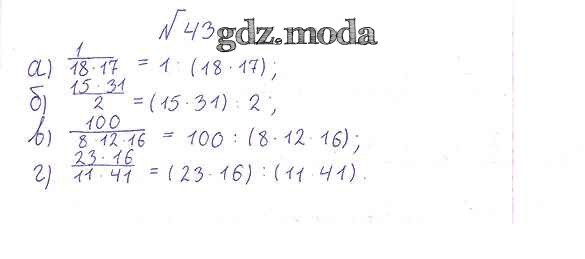 № 43 gdz.moda
а) 1/(18·17) = 1 : (18·17);
б) (15·31)/2 = (15·31) : 2;
в) 100/(8·12·16) = 100 : (8·12·16);
г) (23·16)/(11·41) = (23·16) : (11·41).